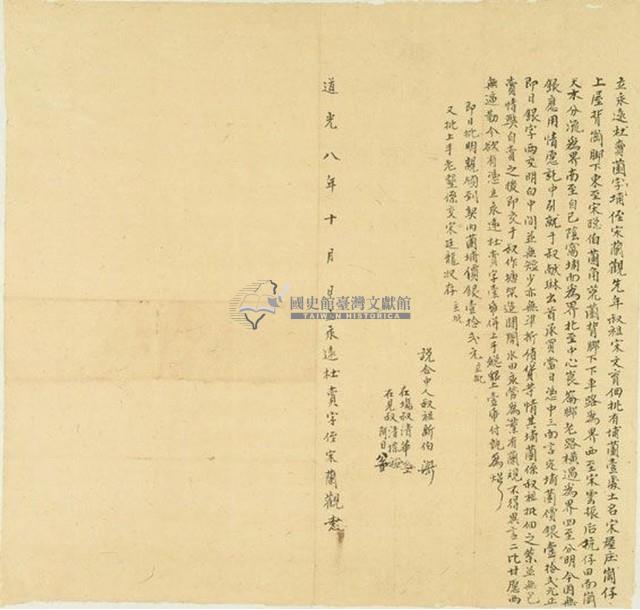 立永遠杜賣蘭字埔侄宋蘭觀先年叔祖宋文育佃批有埔蘭壹處土名宋屋庄崗仔
上屋背崗脚下東至宋晚伯蘭角荒蘭背脚下下車路為界西至宋雲振后坑仔田面崗
天水分流為界南至自己陰窩埔面為界北至中心崀崙脚老路橫過為界四至分明今因無
銀應用情愿託中引就于叔献琳出首承買當日憑中三面言定埔蘭價銀壹拾弍元正
即日銀字兩交明白中間並無短少亦無準折債貨等情其埔蘭係叔祖批佃之業並無包
賣情獘自賣之後即交于叔作塘架造開闢水田永管為業有蘭現不得異言二比甘愿兩
無逼勒今欲有憑立永遠杜賣字壹帋併上手總墾壹帋付執為炤
即日批明親領到契內蘭埔價銀壹拾弍元 立批
又批上手老墾係交宋廷龍收存 立批
說合中人叔祖新伯
在塲叔清華
在見叔清
阿日
國史館臺灣文獻館
TAIWAN HISTORICA
道光八年十月 日永遠杜賣字侄宋蘭觀